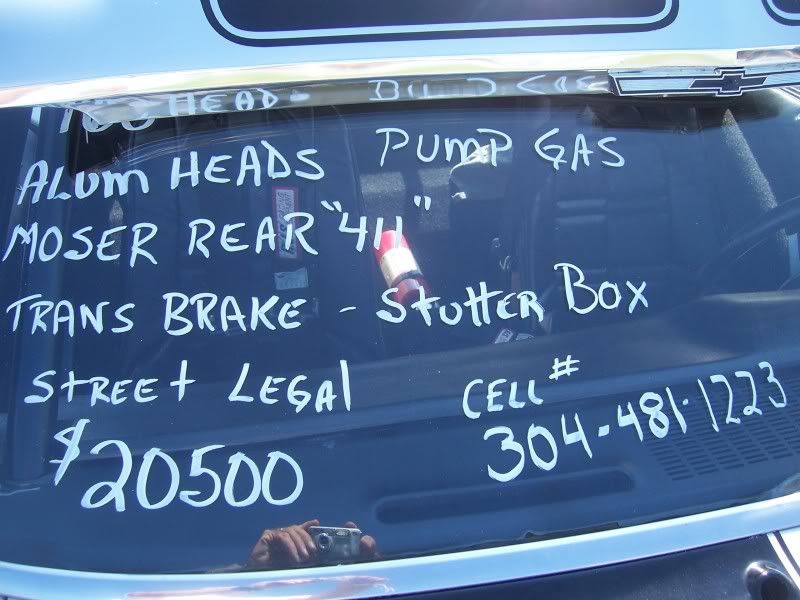 ALUM HEADS PUMP GAS
MOSER REAR "411"
TRANS BRAKE - STUTTER BOX
STREET LEGAL CELL #
$20500 304-481-1223